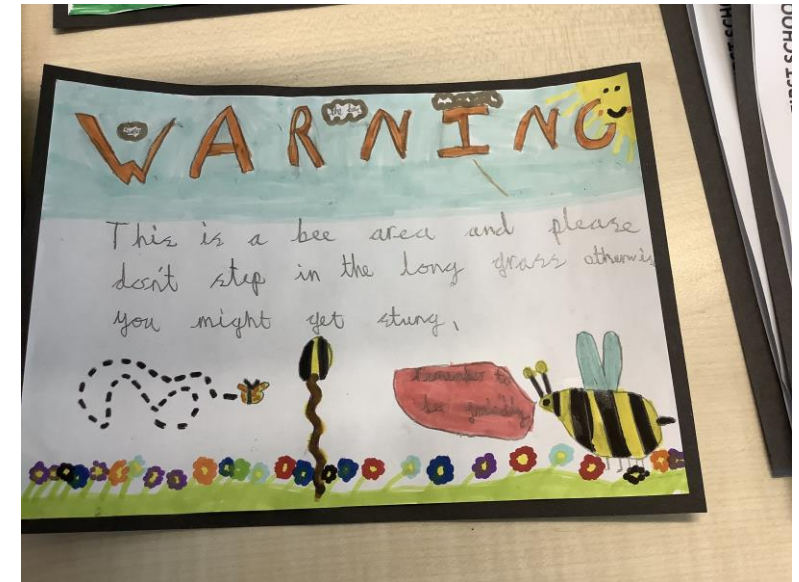 WARNING
This is a bee area and please
don't step in the long grass otherwis
you might get stung,
Remember to
bee